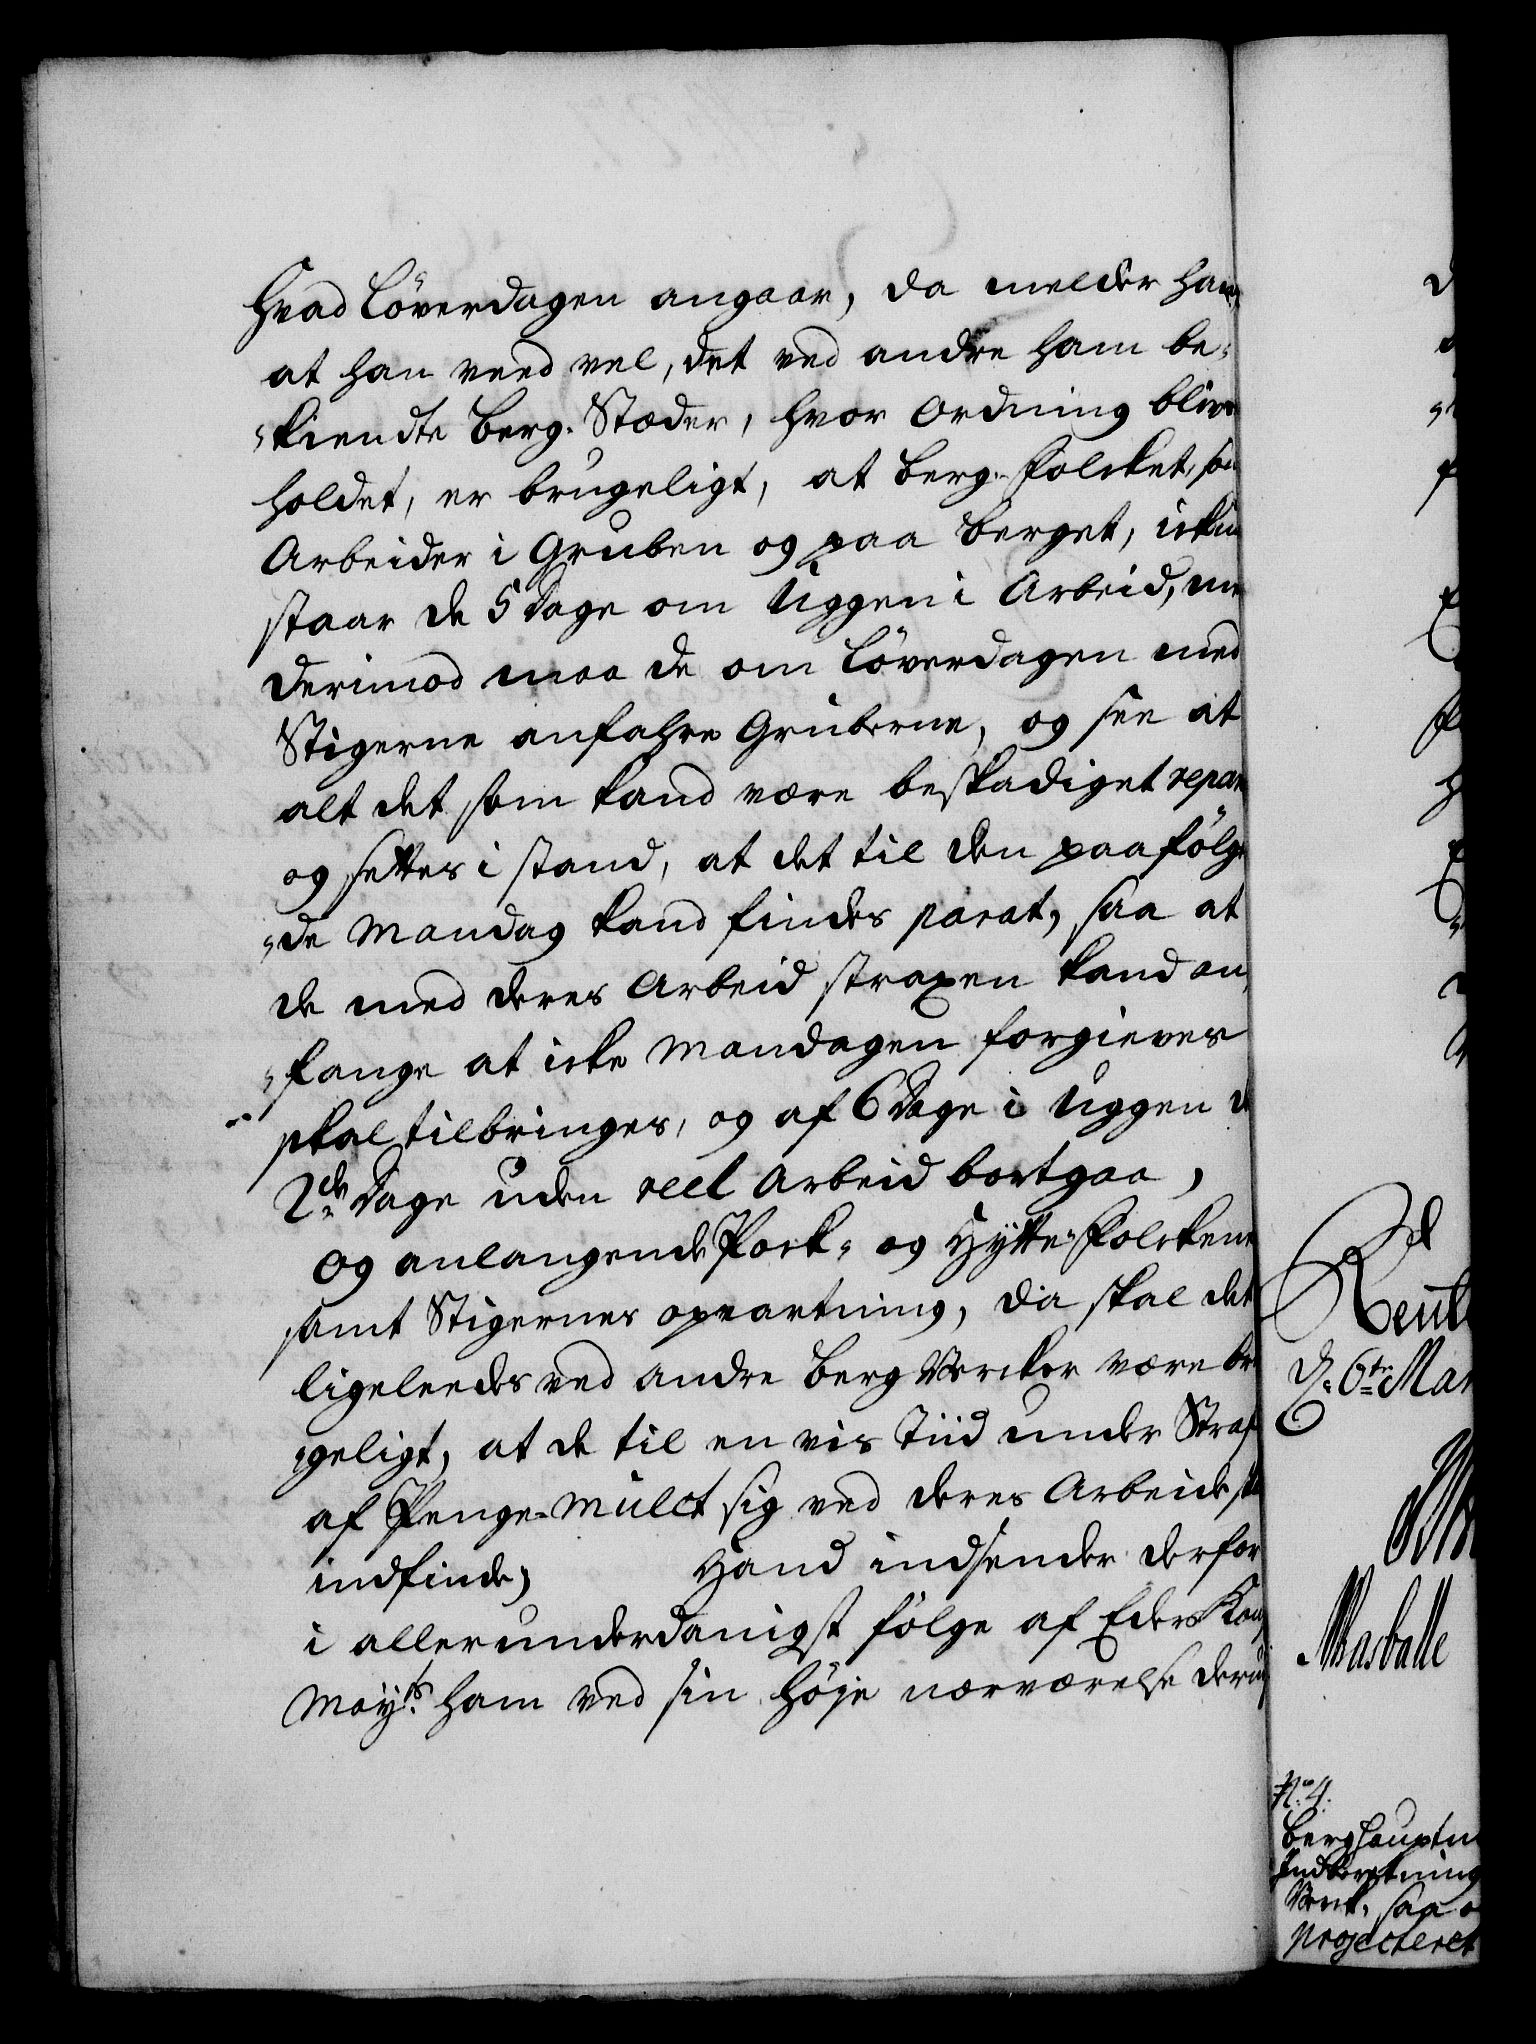 Hvad Löverdagen angaar, da melder han,
at han veed vel, det ved andre ham be-
kiendte Berg-Stæder, hvor Ordning blive
holdet, er brugeligt, at Berg-Folcket, som
Arbeider i Gruben og paa Berget, ickun
staar de 5 Dage om Uggen i Arbeid, men
derimod maa de om Löverdagen med
Stigerne anfahre Gruberne, og see at
alt det som kand være beskadiget repare
og settes i stand, at det til den paafölgen
de Mandag kand findes parat, saa at
de med deres Arbeid straxen kand an-
fange at icke Mandagen forgieves
skal tilbringes, og af 6 Dage i Uggen de
2de Dage uden reel Arbeid bortgaa,
Og anlangende Pock- og Hytte-Folckene
samt Stigernes opvartning, da skal det
ligeleedes ved andre Berg Vercker være bru
geligt, at de til en vis Tiid under Straf
af Penge-Mulct sig ved deres Arbeide skal
indfinde, Hand indsender derfor
i allerunderdanigst fölge af Eders Kong
Mayts ham ved sin höje nærværelse derud
Rent
D. 6te Mar
No 4.
Berghauptm
Indberetning
Verk, saa
projecteret